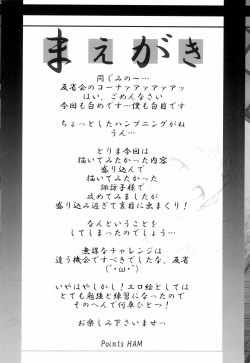 まえがき
同じみの〜…
反省会のコーナァアァアァアッ
はい、ごめんなさい
今回も白めです…僕も白目です
ちょっとしたハンプニングがね
うん…
とりま今回は
描いてみたかった内容
盛り込んで
描いてみたかった
諏訪子様で
攻めてましたが
盛り込み過ぎて裏目に出まくり!
なんということを
してしまったのでしょう…
無謀なチャレンジは
違う機会ですべきでしたな、反省
(´・ω・`)
いやはやしかし!エロ絵としては
とても勉強と練習になったので
そのへんで何卒ひとつ!
お楽しみ下さいませっ
Points HAM